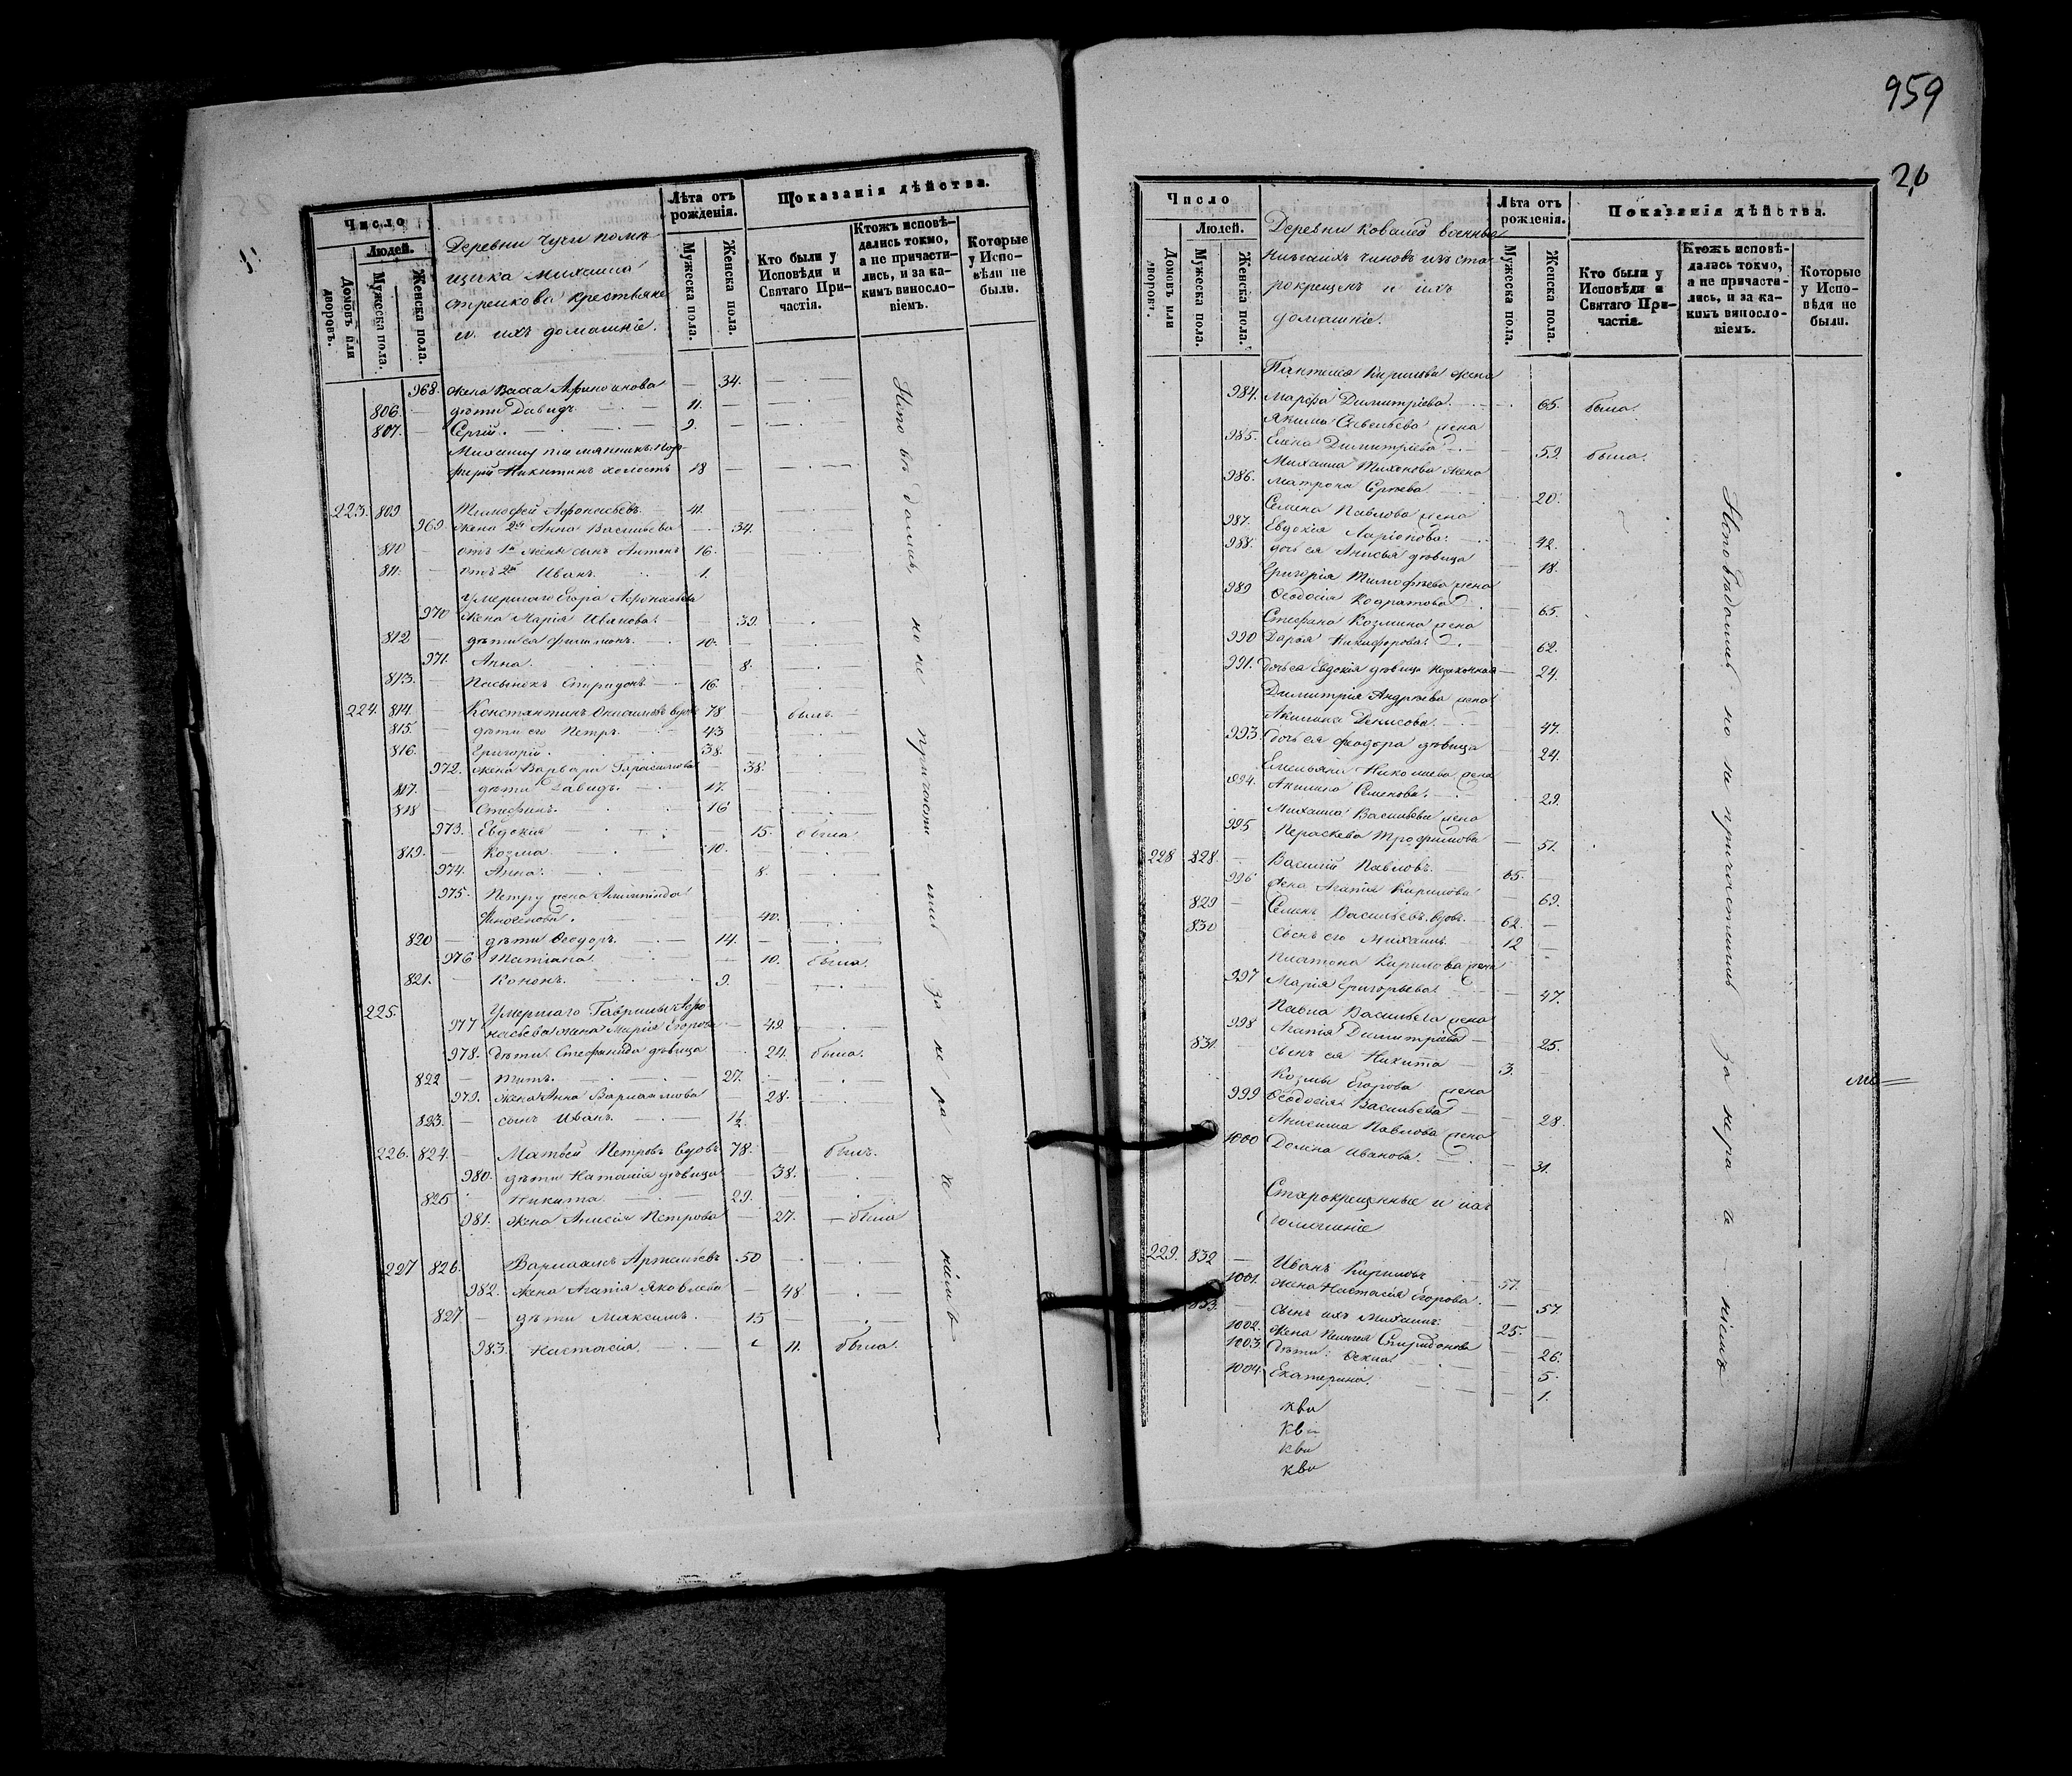 Число
Людей.
Домовъ или дворовъ.
Мужеска пола.
Женска пола.
Деревни Чучи помѣ
щика Михаила
Стрекова крестьяне
и ихъ домашніе.
Лѣта отъ рожденія.
Мужеска пола.
Женска пола.
Показанія дѣйства.
Кто были у Исповѣди и Святаго При-частія.
Ктожъ исповѣ-дались токмо, а не причасти-лись, и за ка-кимъ винословіемъ.
Которые у Испо-вѣди не были.
968. жена Васса — 34. —
806. — дѣти Давидъ. — 11. —
807. — Сергій. — 9. —
Михаилу племянникъ Пор-
фирій Никитинъ холостъ 18 —
223. 809 Тимофей Афонасьевъ — 41.
969. жена 2я Анна Васильева — 34.
810 — отъ 1й жены сынъ Антонъ 16.
811. — отъ 2й Иванъ. 1.
Умершаго Егора Афонасьева
970 жена Марія Иванова. 39.
812 — дѣти ея Филимонъ. 10. —
971. Анна. — 8.
813. — Пасынокъ Спиридонъ. — 16.
224. 814 — Константинъ вдовъ 78 — былъ. —
815. — дѣти его Петръ. — 43
816. — Григорій. — 38. —
972. жена Варвара Герасимова — 38.
817. — дѣти Давидъ. — 17. —
818 — Стефанъ. — 16
973. Евдокія — 15. была
819. — Козма. — 10. —
974. Анна. — 8.
975. Петру жена
40.
820 — дѣти Ѳеодоръ. — 14. —
976 Татіана. — 10. была.
821. — Кононъ. — 9. —
225. Умершаго Гаврилы Афо
977 насьева жена Марія Егорова — 49. —
978. Дѣти Стефанида дѣвица — 24. была.
822 — Титъ. — 27. —
979. жена Анна Варламова — 28. —
823. — сынъ Иванъ. — 1½.
226. 824. — Матвей Петровъ вдовъ 78. — былъ.
980. дѣти Наталія дѣвица 38. —
825 — Никита. — 29. —
981. жена Анисія Петрова — 27. — была
227 826. Варлаамъ 50 —
982. жена Агапія Яковлева — 48 —
827 — дѣти Максимъ. — 15 —
983. Настасія. — 11. была.
Исповѣдались, но не причастились за не ра че ніемъ
959
20
Число
Людей.
Домовъ или дворовъ.
Мужеска пола.
Женска пола.
Деревни Ковалей военныхъ
нижнихъ чиновъ изъ ста
рокрещенъ и ихъ
домашніе.
Лѣта отъ рожденія.
Мужеска пола.
Женска пола.
Показанія дѣйства.
Кто были у Исповѣди и Святаго При-частія.
Ктожъ исповѣ-дались токмо, а не причасти-лись, и за ка-кимъ винословіемъ.
Которые у Испо-вѣди не были.
Пантелея Кирилова жена
984. Марѳа Димитріева. — 65. была.
Якима Савельева жена
985. Елена Димитріева — 59. была.
Михаила Тихонова жена
986. Матрона Сергѣева — 20.
Семена Павлова жена
987. Евдокія Ларіонова. 42.
988. дочь ея Анисья дѣвица 18.
Григорія Тимофѣева жена
989 Ѳеодосія Кодратова — 65.
Стефана Козмина жена
990 Дарья Никифорова. — 62.
991. Дочь ея Евдокія дѣвица незаконная — 24.
Димитрія Андреева жена
Акилина Денисова. — 47.
993. Дочь ея Феодора дѣвица — 24.
Емельяна Николаева жена
894. Акилина Семенова. — 29.
Михаила Васильева жена
995 Пераскева Трофимова — 51.
228 828. — Василій Павловъ. — 65. —
996 жена Агапія Кирилова 69.
829 — Семенъ Васильевъ вдовъ. — 62. —
830 сынъ его Михаилъ — 12 —
Платона Кирилова жена
997 Марія Григорьева. — 47.
Павла Васильева жена
998 Агапія Димитріева — 25.
831. — сынъ ея Никита — 3. —
Козмы Егорова жена
999 Ѳеодосія Васильева — 28.
Анисима Павлова жена
1000 Домна Иванова. — 31.
Старокрещенные и ихъ
домашніе
229. 832 — Иванъ Кириловъ 57.
1001. жена Настасія Егорова. — 57.
833. — сынъ ихъ Михаилъ. 25. —
1002. жена Пелагея Спиридонова — 26.
1003. Дѣти: Ѳекла — 5.
1004. Екатерина. — 1.
кви
кви
кви
кви
Исповѣдались но не причастились за нера че ніемъ